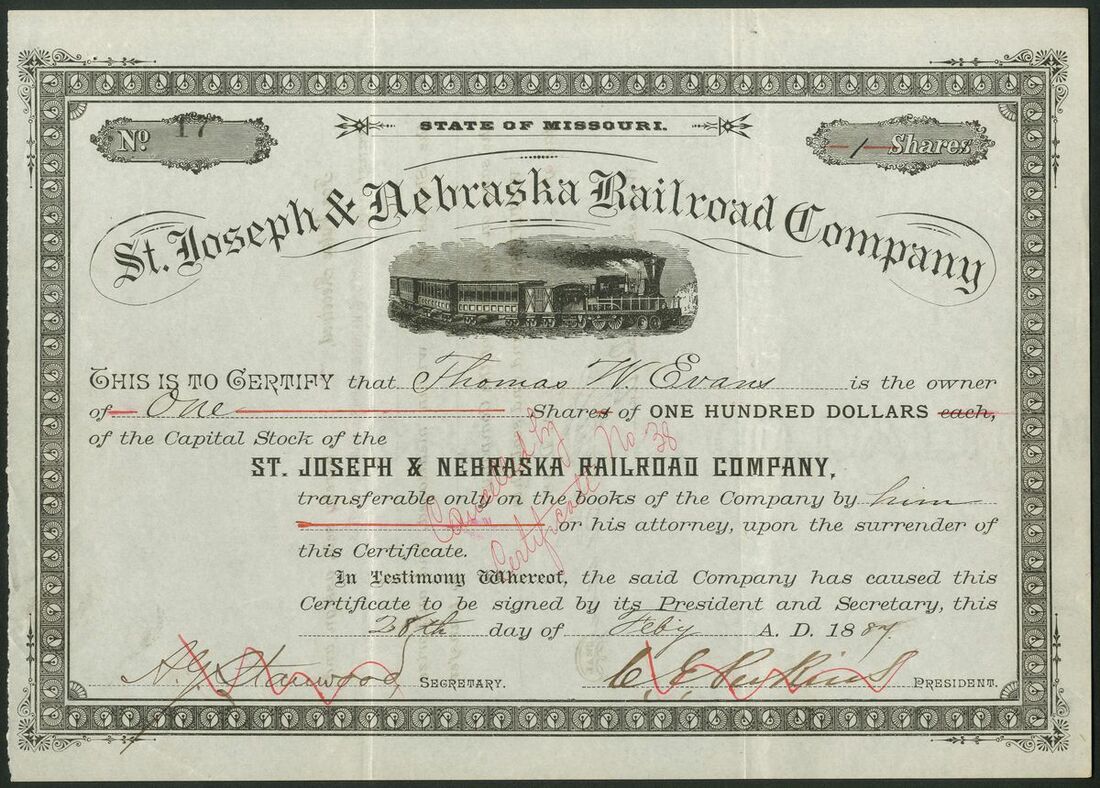 No 17
STATE OF MISSOURI.
1 Shares
St. Joseph & Nebraska Railroad Company
THIS IS TO CERTIFY that Thomas W. Evans is the owner
of One Shares of ONE HUNDRED DOLLARS each,
of the Capital Stock of the
ST. JOSEPH & NEBRASKA RAILROAD COMPANY,
transferable only on the books of the Company by him
or his attorney, upon the surrender of
this Certificate.
Cancelled by
Certificate No 38
In Testimony Whereof, the said Company has caused this
Certificate to be signed by its President and Secretary, this
28th day of Feby A. D. 1887
Stanwood SECRETARY.
C E Perkins PRESIDENT.